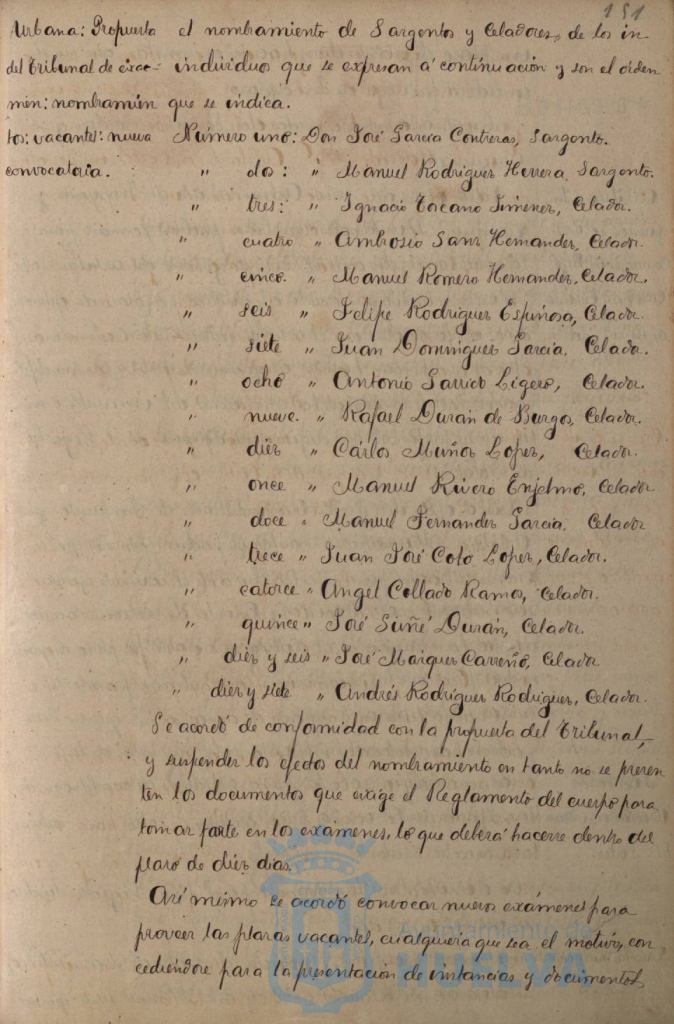 151
Urbana: Propuesta
del Tribunal de exa-
men: nombramien
tos: vacantes: nueva
convocatoria.
el nombramiento de Sargentos y Celadores, de los in-
individuos que se expresan á continuación y son el órden
que se indica.
Número uno: Don José García Contreras, Sargento.
" dos: " Manuel Rodriguez Herrera, Sargento.
" tres: " Ignacio Toscano Jimenez, Celador.
" cuatro " Ambrosio Sanz Hernandez, Celador.
" cinco. " Manuel Romero Hernandez, Celador.
" seis " Felipe Rodriguez Espinosa, Celador.
" siete " Juan Dominguez García, Celador.
" ocho " Antonio Garrido Ligero, Celador.
" nueve. " Rafael Durán de Burgos, Celador.
" diez " Cárlos Muñoz Lopez, Celador.
" once " Manuel Rivero Enjelmo, Celador
" doce " Manuel Fernandez García, Celador
" trece " Juan José Coto Lopez, Celador.
" catorce " Angel Collado Ramos, Celador.
" quince " José Suñé Durán, Celador.
" diez y seis " José Maiquez Carreño, Celador
" diez y siete " Andrés Rodriguez Rodriguez, Celador.
Se acordó de conformidad con la propuesta del Tribunal,
y suspender los efectos del nombramiento en tanto no se presen
ten los documentos que exige el Reglamento del cuerpo para
tomar parte en los exámenes, lo que deberá hacerse dentro del
plazo de diez dias.
Asi mismo se acordó convocar nuevos exámenes para
proveer las plazas vacantes, cualquiera que sea el motivo, con
cediendose para la presentación de instancias y documentos,
Ayuntamiento de
HUELVA